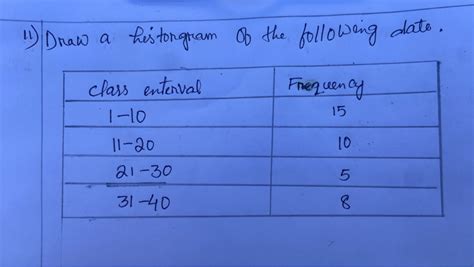 11) Draw a histongram of the following data.
class enterval Frequency
1-10 15
11-20 10
21-30 5
31-40 8